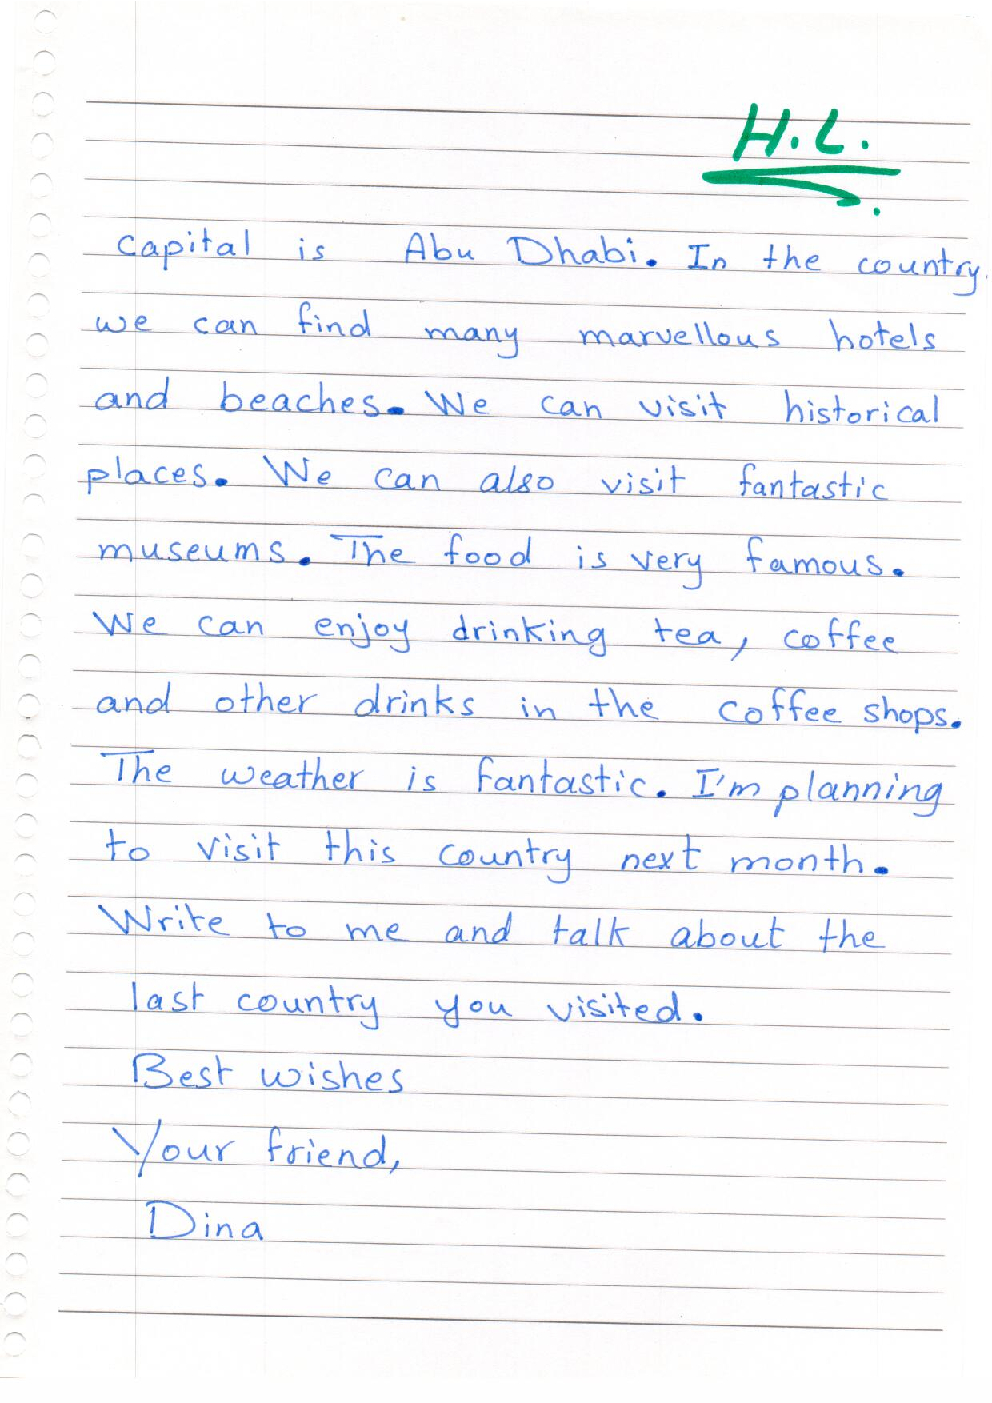 H.L.
capital is Abu Dhabi. In the country
we can find many marvellous hotels
and beaches. We can visit historical
places. We can also visit fantastic
museums. The food is very famous.
We can enjoy drinking tea, coffee
and other drinks in the coffee shops.
The weather is fantastic. I'm planning
to visit this country next month.
Write to me and talk about the
last country you visited.
Best wishes
Your friend,
Dina